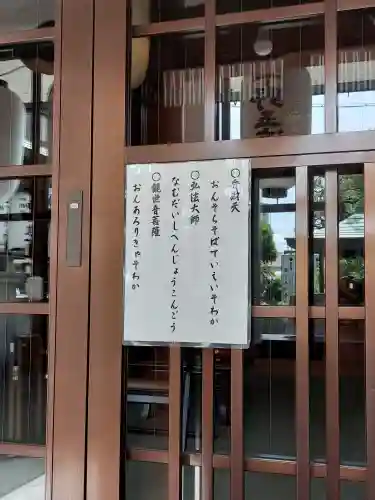 ○弁財天
おんそらそばていえいそわか
○弘法大師
なむだいしへんじょうこんごう
○観世音菩薩
おんあろりきゃそわか